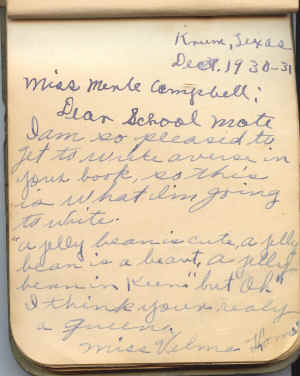 Krum, Texas
Dec. 1930-31
Miss Merle Campbell;
Dear School mate
I am so pleased to
get to write a verse in
your book, so this
is what I'm going
to write.
"a jelly bean is cute, a jelly
bean is a beaut, a jelly
bean in Keen" but "Oh"
I think your realy
a queen,
Miss Velma